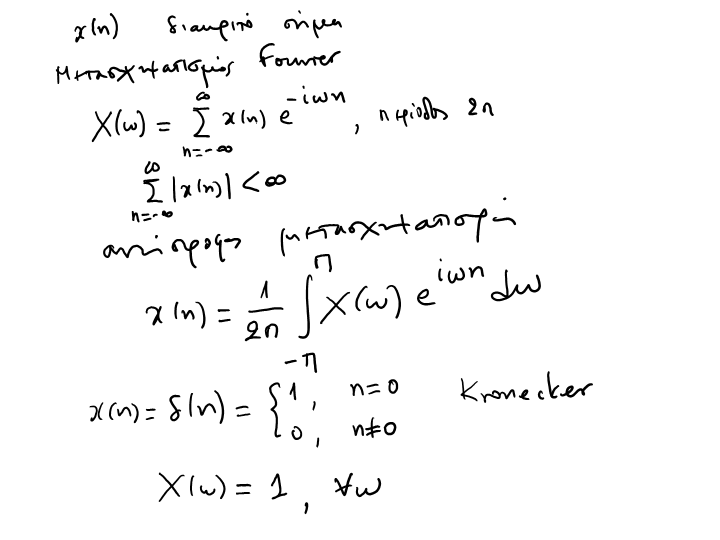 x(n) διακριτό σήμα
Μετασχηματισμός Fourier
X(ω) = ∑_{n=-∞}^{∞} x(n) e^{-iωn} , περίοδος 2π
∑_{n=-∞}^{∞} |x(n)| < ∞
αντίστροφος μετασχηματισμός
x(n) = \frac{1}{2π} ∫_{-π}^{π} X(ω) e^{iωn} dω
x(n) = δ(n) = { 1, n=0
0, n≠0
Kronecker
X(ω) = 1 , ∀ω